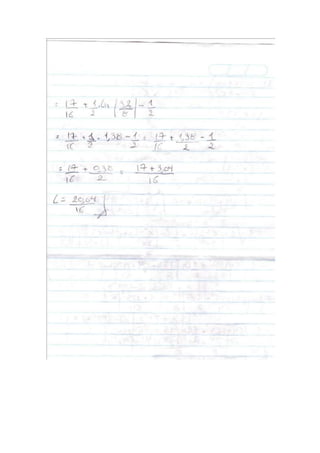 = 17/16 + 1/2 ln |32/8| - 1/2
= 17/16 + 1/2 . 1,38 - 1/2 = 17/16 + 1,38/2 - 1/2
= 17/16 + 0,38/2 = 17 + 3,04/16
L = 20,04/16